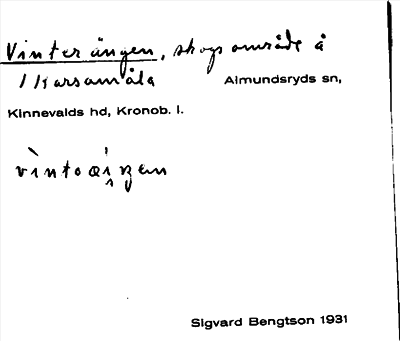 Vinterängen, skogsområde å
1 Karsamåla Almundsryds sn,
Kinnevalds hd, Kronob. l.
Sigvard Bengtson 1931